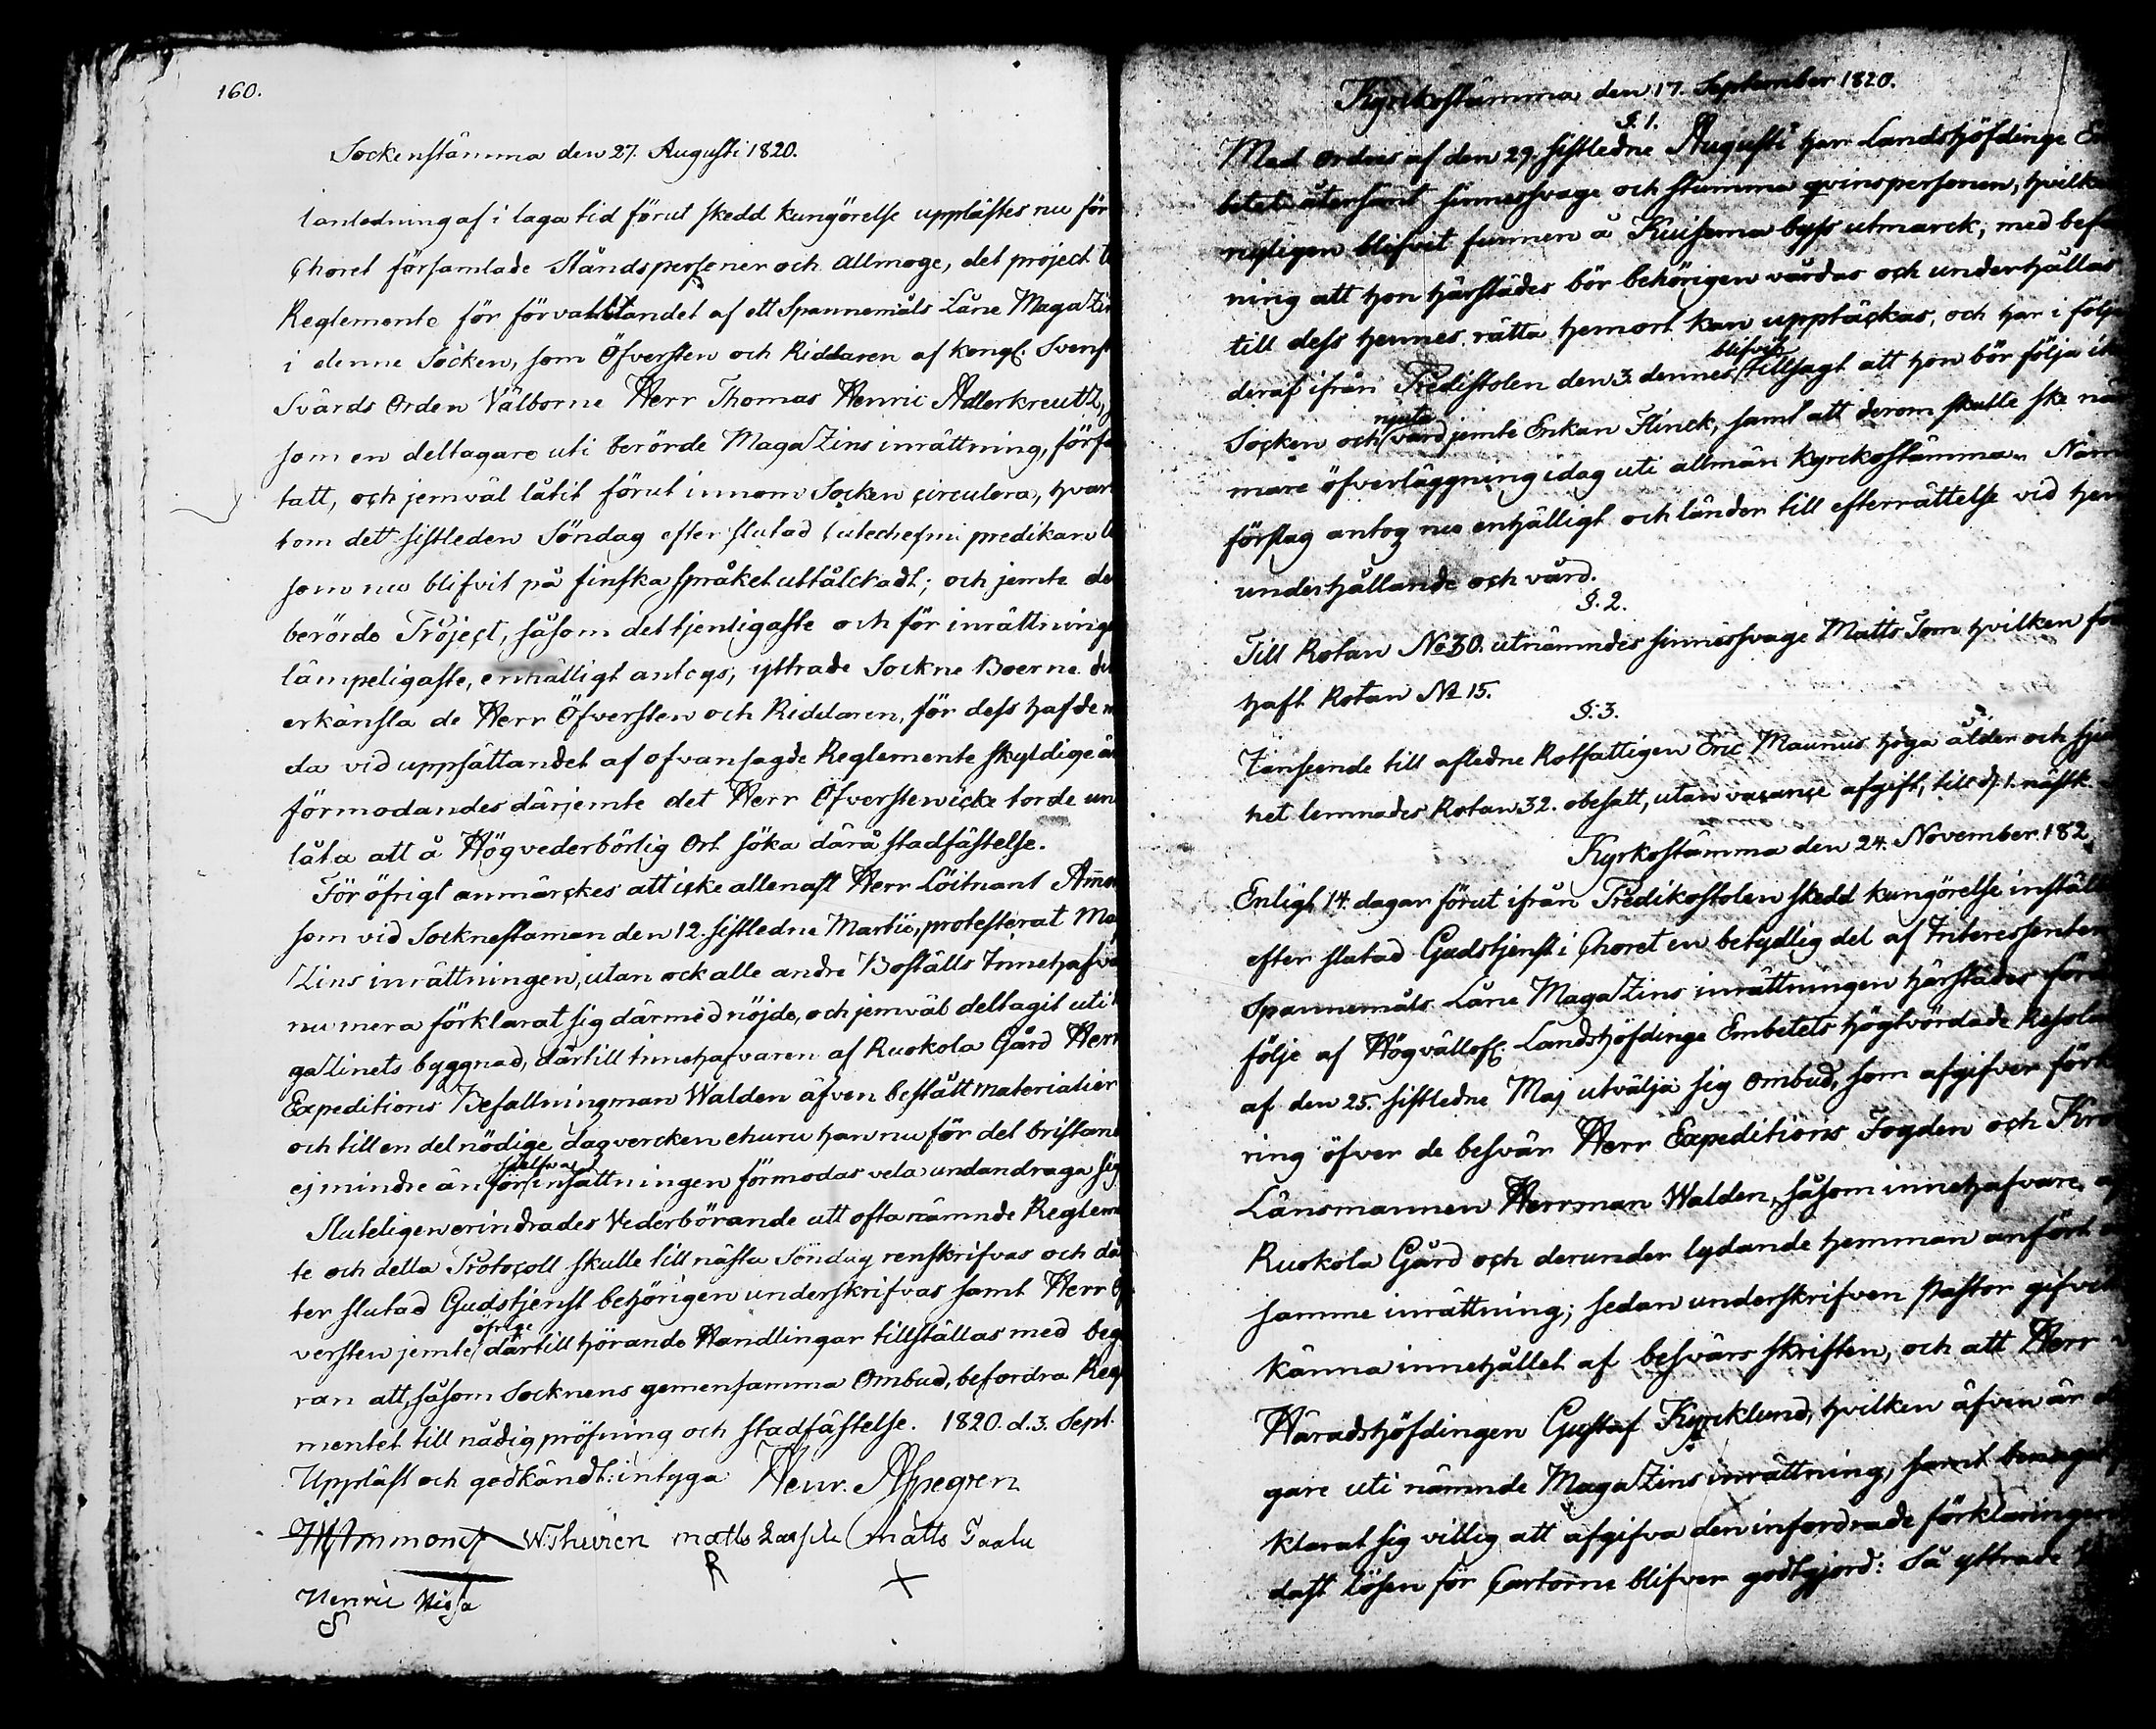 160.
Sockenstämma den 27. Augusti 1820.
I anledning af i laga tid förut skedd kungörelse upplästes nu för
Choret församlade Ståndspersoner och allmoge, det project t
Reglemente för förvaltandet af ett Spannemåls Låne Magazi
i denne Socken, som Öfversten och Riddaren af kongl. Svens
Svärds Orden Välborne Herr Thomas Henric Adlerkreutz,
som en deltagare uti berörde Magazins inrättning, förfa
tatt, och jemväl låtit förut innom Socken circulera, hvar
tom dett sistleden Söndag efter slutad Catechesmi predikan
som nu blifvit på finska språket uttålckadt; och jemte de
berörde Project, såsom det tjenligaste och för inrättning
lämpeligaste, enhälligt antogs, yttrade Sockne Boerne de
erkänsla de Herr Öfversten och Riddaren, för dess hafde m
da vid uppsättandet af ofvansagde Reglemente skyldige ä
förmodandes därjemte det Herr Öfversten icke torde un
låta att å Högvederbörlig Ort söka därå stadfästelse.
För öfrigt anmärckes att icke allenast Herr Löitnant Ammon
som vid Socknestäman den 12. sistledne Martii, protesterat Ma
Zins inrättningen, utan ock alle andre Boställs Innehafva
nu mera förklarat sig därmed nöjde, och jemväl deltagit uti
gazinets byggnad, därtill innehafvaren af Ruokola Gård Herr
Expeditions Befallningman Walden äfven bestått materialier
och till en del nödige dagvercken ehuru han nu för det bristan
ej mindre än för sielfva insättningen förmodas vela undandraga sig
Sluteligen erindrades Vederbörande att oftanämnde Reglem
te och detta Protocoll skulle till nästa Söndag renskrifvas och då
ter slutad Gudstjenst behörigen underskrifvas samt Herr Öf
versten jemte öfrige därtill hörande Handlingar tillställas med beg
ran att, såsom Socknens gemensamma Ombud, befordra Reg
mentet till nådig pröfning och stadfästelse. 1820. d. 3. Sept.
Uppläst och godkändt: intyga Henr. Aspegren
Ammondt W: Thuvien matts Matts Taalu
R
Henric
Kyrckostämma den 17. September 1820.
§. 1.
Med orders af den 29. sistledne Augusti har Landshöfdinge Em
betet återsänt sinnessvage och stumma qvinspersonen, hvilke
nyligen blifvit funnen å Kuisema byss utmarck, med befa
ning att hon härstädes bör behörigen vårdas och underhållas
till dess hennes rätta hemort kan upptäckas, och har i följe
deraf ifrån Predikstolen den 3. dennes blifvit tillsagt att hon bör följa i
Socken och njuta vård jemte Enkan Flinck, samt att derom skulle ske nä
mare öfverläggning idag uti allmän kyrckostämma. Näm
förslag antog nu enhälligt och länder till efterrättelse vid hen
underhållande och vård.
§. 2.
Till Rotan No 30. utnämndes sinnessvage Matts Tom hvilken för
haft Rotan No 15.
§. 3.
I anseende till afledne Rotfattigen Eric Maunus höga ålder och sju
het lemnades Rotan 32. obesatt, utan vacance afgift, till d. 1. nästk.
Kyrkostämma den 24. November 182
Enligt 14. dagar förut ifrån Predikostolen skedd kungörelse instält
efter slutad Gudstjenst i Choret en betydlig del af Interessenter
Spannemåls Låne Magazins inrättningen härstädes för
följe af Högvällofl. Landshöfdinge Embetets högtvördade Resolu
af den 25. sistledne Maj utvälja sig Ombud, som afgifver förk
ring öfver de besvär Herr Expeditions Fogden och Kro
Länsmannen Herrman Walden, såsom innehafvare af
Ruokola Gård och derunder lydande hemman anfört
samme inrättning; sedan underskrifven Pastor gifvit
känna innehållet af besvärsskriften, och att Herr
Häradshöfdingen Gustaf Kyrcklund, hvilken äfven är
gare uti nämnde Magazins inrättning, samt benäget
klarat sig villig att afgifva den infordrade förklaringen
dast lösen för Cartorne blifver godtgjord: Så yttrade